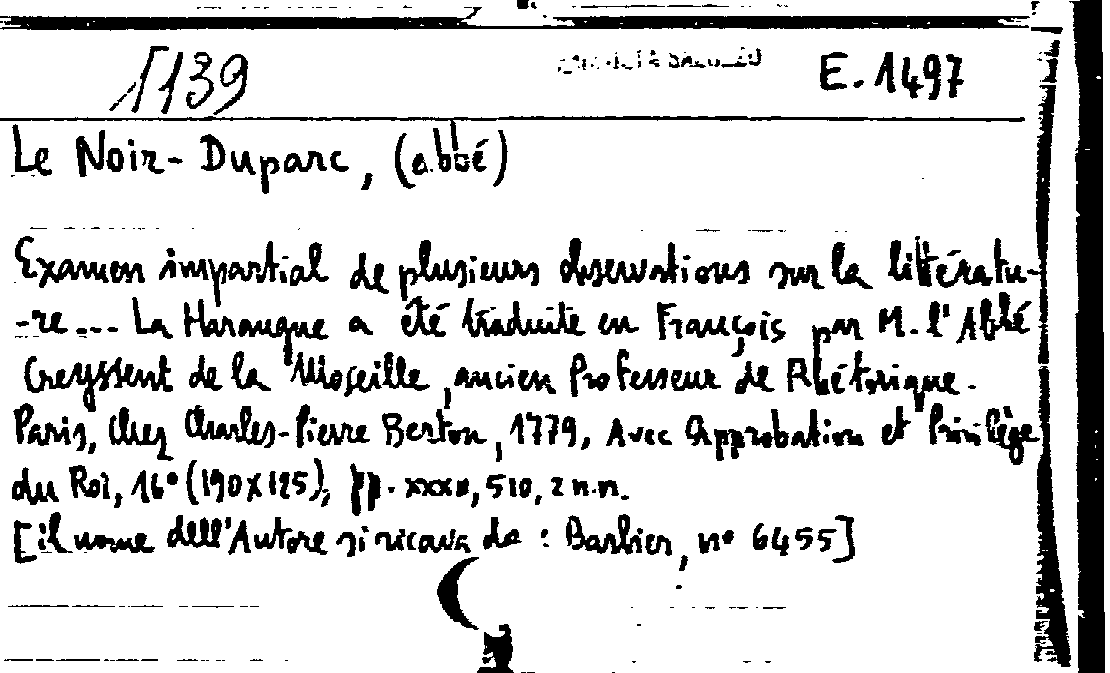 1139
E. 1497
Le Noir-Duparc, (abbé)
Examen impartial de plusieurs observations sur la littératu-
-re... La Harangue a été traduite en François par M. l'Abbé
Creyssent de la Moseille, ancien Professeur de Rhétorique.
Paris, Chez Charles-Pierre Berton, 1779, Avec Approbation et Privilège
du Roi, 16° (190x125), pp. 510, 2 n.n.
[il nome dell'Autore si ricava da : Barbier, n° 6455]